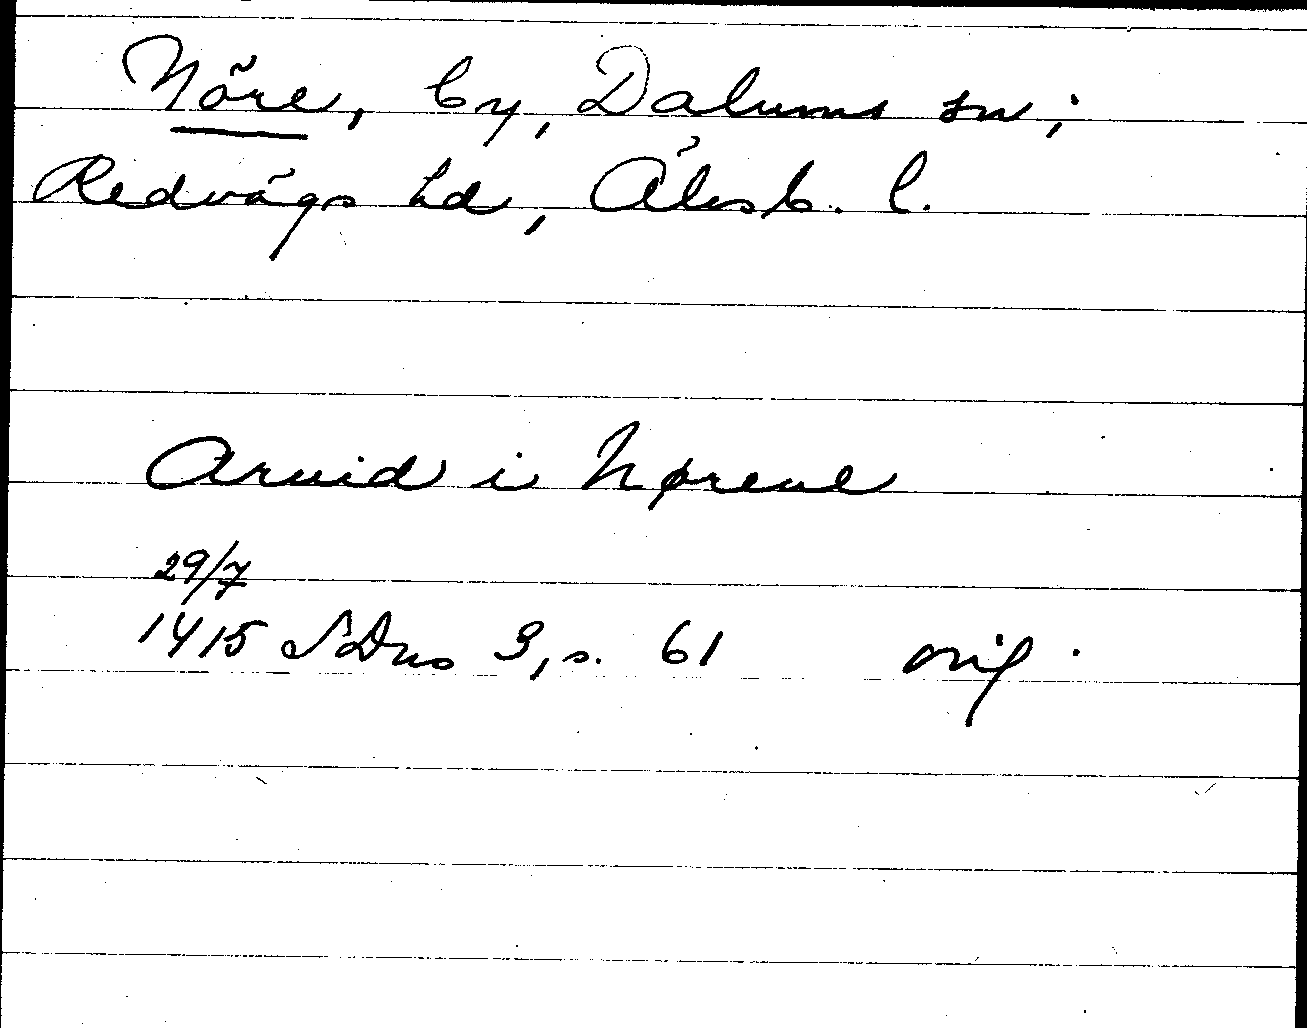 Nöre, by, Dalums sn;
Redvägs hd, Älvsb. l.
Arvid i Nøreve
29/7
1415 SDns 3, s. 61 orig.